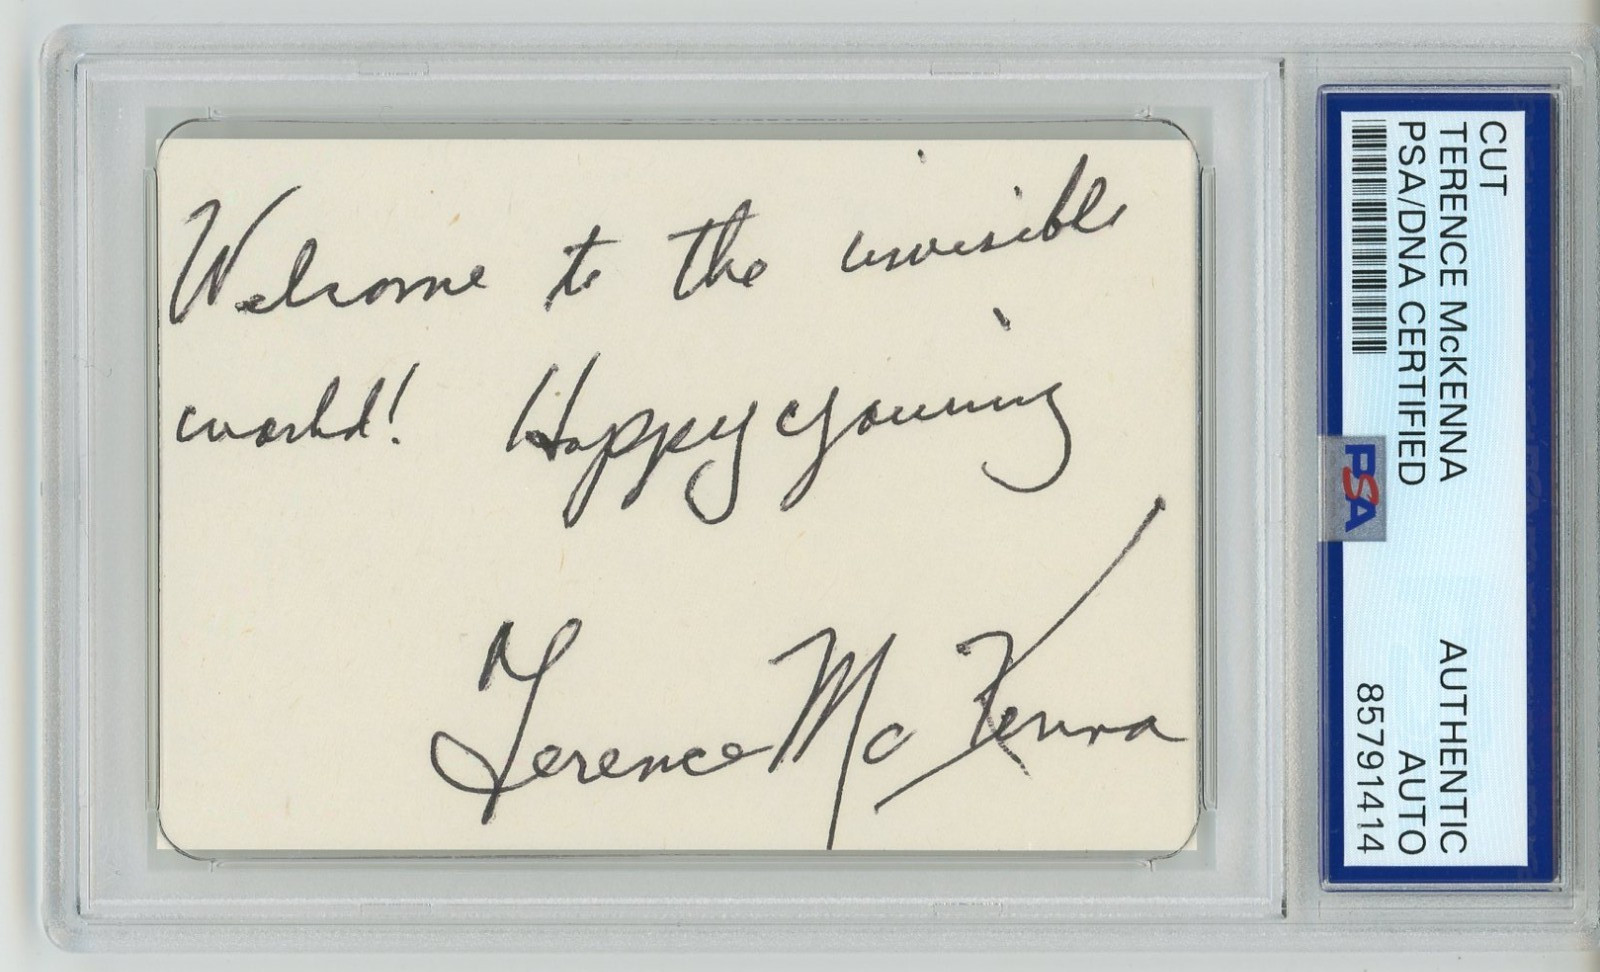 Welcome to the invisible
world! Happy
Terence McKenna
CUT
TERENCE McKENNA
PSA/DNA CERTIFIED
AUTHENTIC
AUTO
85791414
PSA